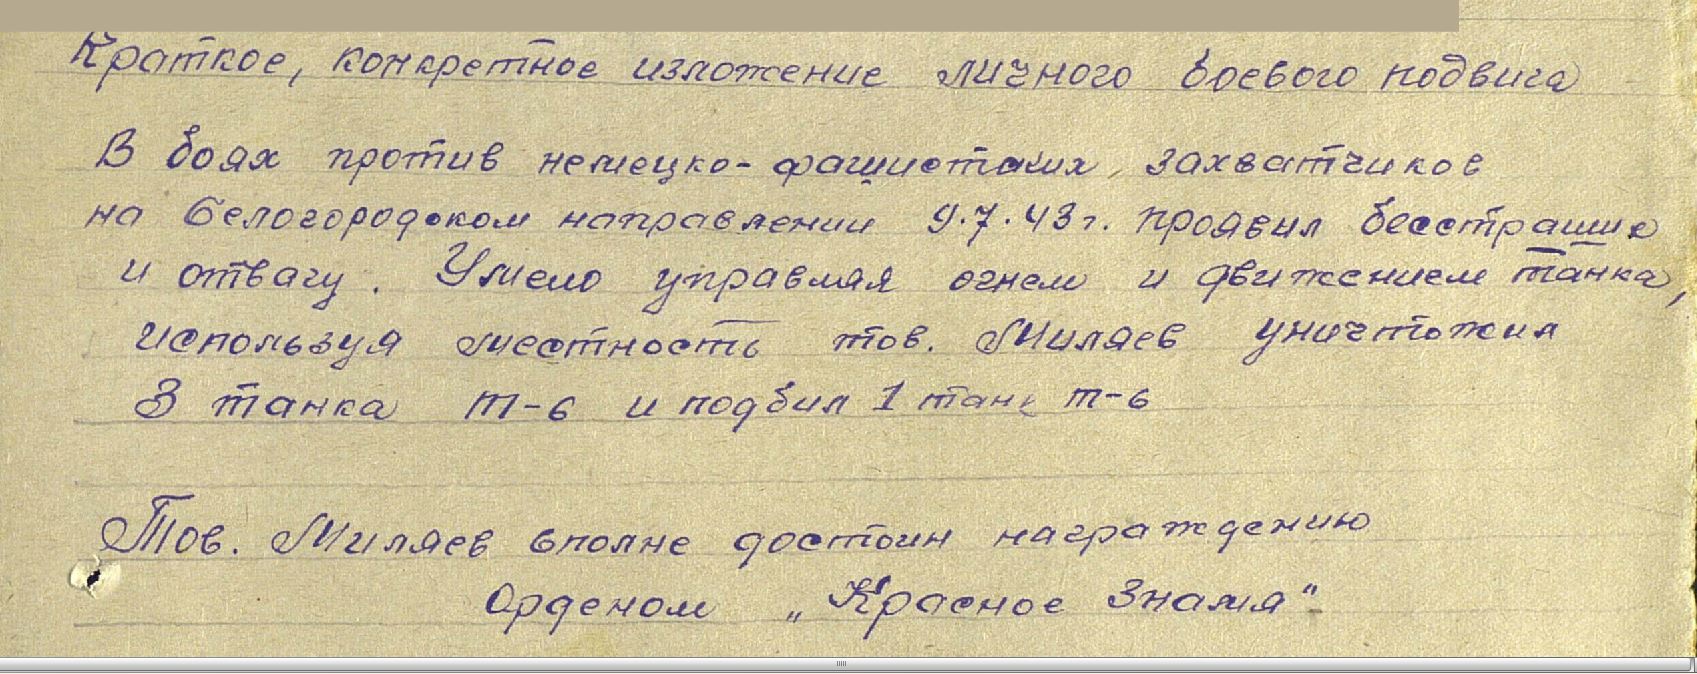 Краткое, конкретное изложение личного боевого подвига
В боях против немецко-фашистских захватчиков
на Белогородском направлении 9.7.43г. проявил бесстрашие
и отвагу. Умело управляя огнем и движением танка,
используя местность тов. Миляев уничтожил
3 танка Т-6 и подбил 1 танк Т-6
Тов. Миляев вполне достоин награждению
Орденом „Красное Знамя"